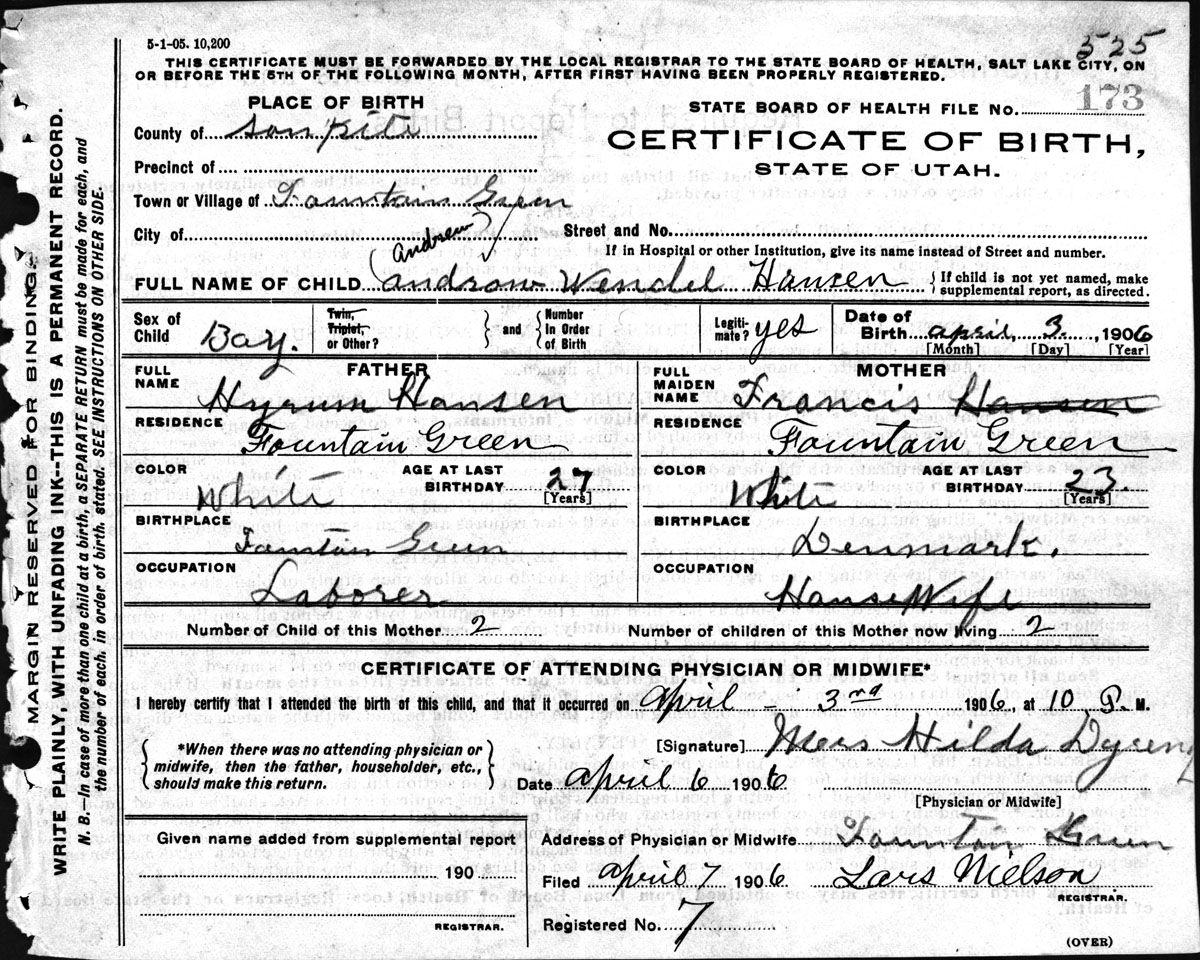 5-1-05. 10,200
525
THIS CERTIFICATE MUST BE FORWARDED BY THE LOCAL REGISTRAR TO THE STATE BOARD OF HEALTH, SALT LAKE CITY, ON
OR BEFORE THE 5TH OF THE FOLLOWING MONTH, AFTER FIRST HAVING BEEN PROPERLY REGISTERED.
PLACE OF BIRTH
STATE BOARD OF HEALTH FILE No. 173
County of San pete
CERTIFICATE OF BIRTH,
Precinct of
STATE OF UTAH.
Town or Village of Fountain Green
City of
Street and No.
If in Hospital or other Institution, give its name instead of Street and number.
(Andrew)
FULL NAME OF CHILD Androw Wendel Hansen {If child is not yet named, make supplemental report, as directed.
Sex of Child Boy. Twin, Triplet, or Other? } and { Number In Order of Birth Legitimate? yes Date of Birth April, 3. , 1906
[Month] [Day] [Year]
FATHER
FULL NAME Hyrum Hansen
RESIDENCE Fountain Green
COLOR White AGE AT LAST BIRTHDAY 27 [Years]
BIRTHPLACE Fountain Green
OCCUPATION Laborer
MOTHER
FULL MAIDEN NAME Francis Hansen
RESIDENCE Fountain Green
COLOR White AGE AT LAST BIRTHDAY 23 [Years]
BIRTHPLACE Denmark.
OCCUPATION HouseWife
Number of Child of this Mother 2 Number of children of this Mother now living 2
CERTIFICATE OF ATTENDING PHYSICIAN OR MIDWIFE*
I hereby certify that I attended the birth of this child, and that it occurred on April - 3rd 1906, at 10 P. M.
{*When there was no attending physician or
midwife, then the father, householder, etc.,
should make this return.}
[Signature] Mers Hilda Dyreng
Date April 6 1906
[Physician or Midwife]
Given name added from supplemental report
190
REGISTRAR.
Address of Physician or Midwife Fountain Green
Filed April 7 1906 Lars Nielson
REGISTRAR.
Registered No. 7
(OVER)
MARGIN RESERVED FOR BINDING.
WRITE PLAINLY, WITH UNFADING INK--THIS IS A PERMANENT RECORD.
N. B.--In case of more than one child at a birth, a SEPARATE RETURN must be made for each, and
the number of each, in order of birth, stated. SEE INSTRUCTIONS ON OTHER SIDE.